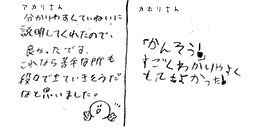 アカリさん
分かりやすくていねいに
説明してくれたので、
良かったです。
これなら苦手な所も
段々できていきそうだ
なと思いました。
カホリさん
「かんそう!
すごくわかりやすく
てもよかった!